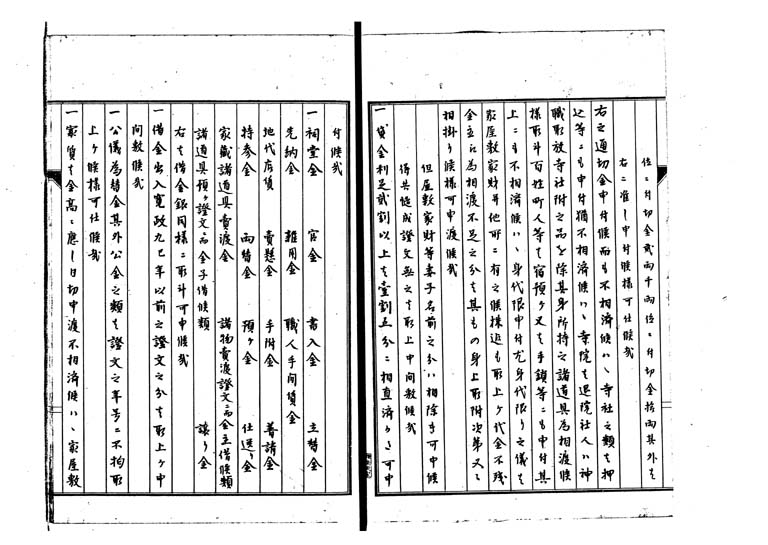 位ニ付切金貳両千両位ニ付切金拾両其外も
右ニ准し申付候様可仕候哉
右之通切金申付候而も不相済候ハヽ寺社之類も押
込等ニも申付猶不相済候ハヽ寺院も退院社人ハ神
職取放寺社附之品を除其身所持之諸道具為相渡候
様取斗百姓町人等も宿預ケ又も手鎖等ニも申付其
上ニも不相済候ハヽ身代限申付尤身代限り之儀も
家屋敷家財并他所ニ有之候株迄も取上ケ代金不残
金主江為相渡不足之分も其もの身上取附次第又々
相掛り候様可申渡候哉
但屋敷家財等妻子名前之分ハ相除き可申候
得共慥成證文無之も取上申間敷候哉
一貸金利足貳割以上も壹割五分ニ相直済方可申
付候哉
一祠堂金 官金 書入金 立替金
先納金 雜用金 職人手間賃金
地代店賃 賣懸金 手附金 普請金
持参金 両替金 預ケ金 仕送り金
家蔵諸道具賣渡金 諸物賣渡證文ニ而金主借候類
諸道具預ケ證文ニ而金子借候類 譲り金
右も借金銀同様ニ取斗可申候哉
一借金出入寛政九巳年以前之證文之分も取上ケ申
間敷候哉
一公儀為替金其外公金之類も證文之年号ニ不拘取
上ケ候様可仕候哉
一家質も金高ニ應し日切申渡不相済候ハヽ家屋敷